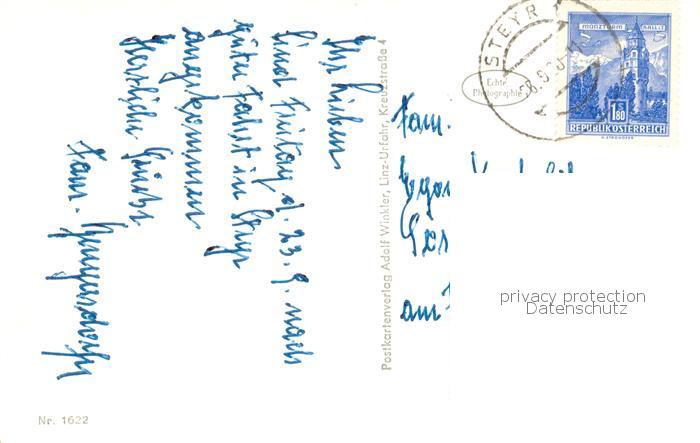 Ihr Lieben
Sind Freitag d. 23. 9. nach
guter Fahrt in Steyr
angekommen
Herzliche Grüße
Fam.
Postkartenverlag Adolf Winkler, Linz-Urfahr, Kreuzstraße 4
Echte
Photographie
STEYR
MÜNZTURM HALL I.T.
1.80
REPUBLIK ÖSTERREICH
Fam.
privacy protection
Datenschutz
Nr. 1622